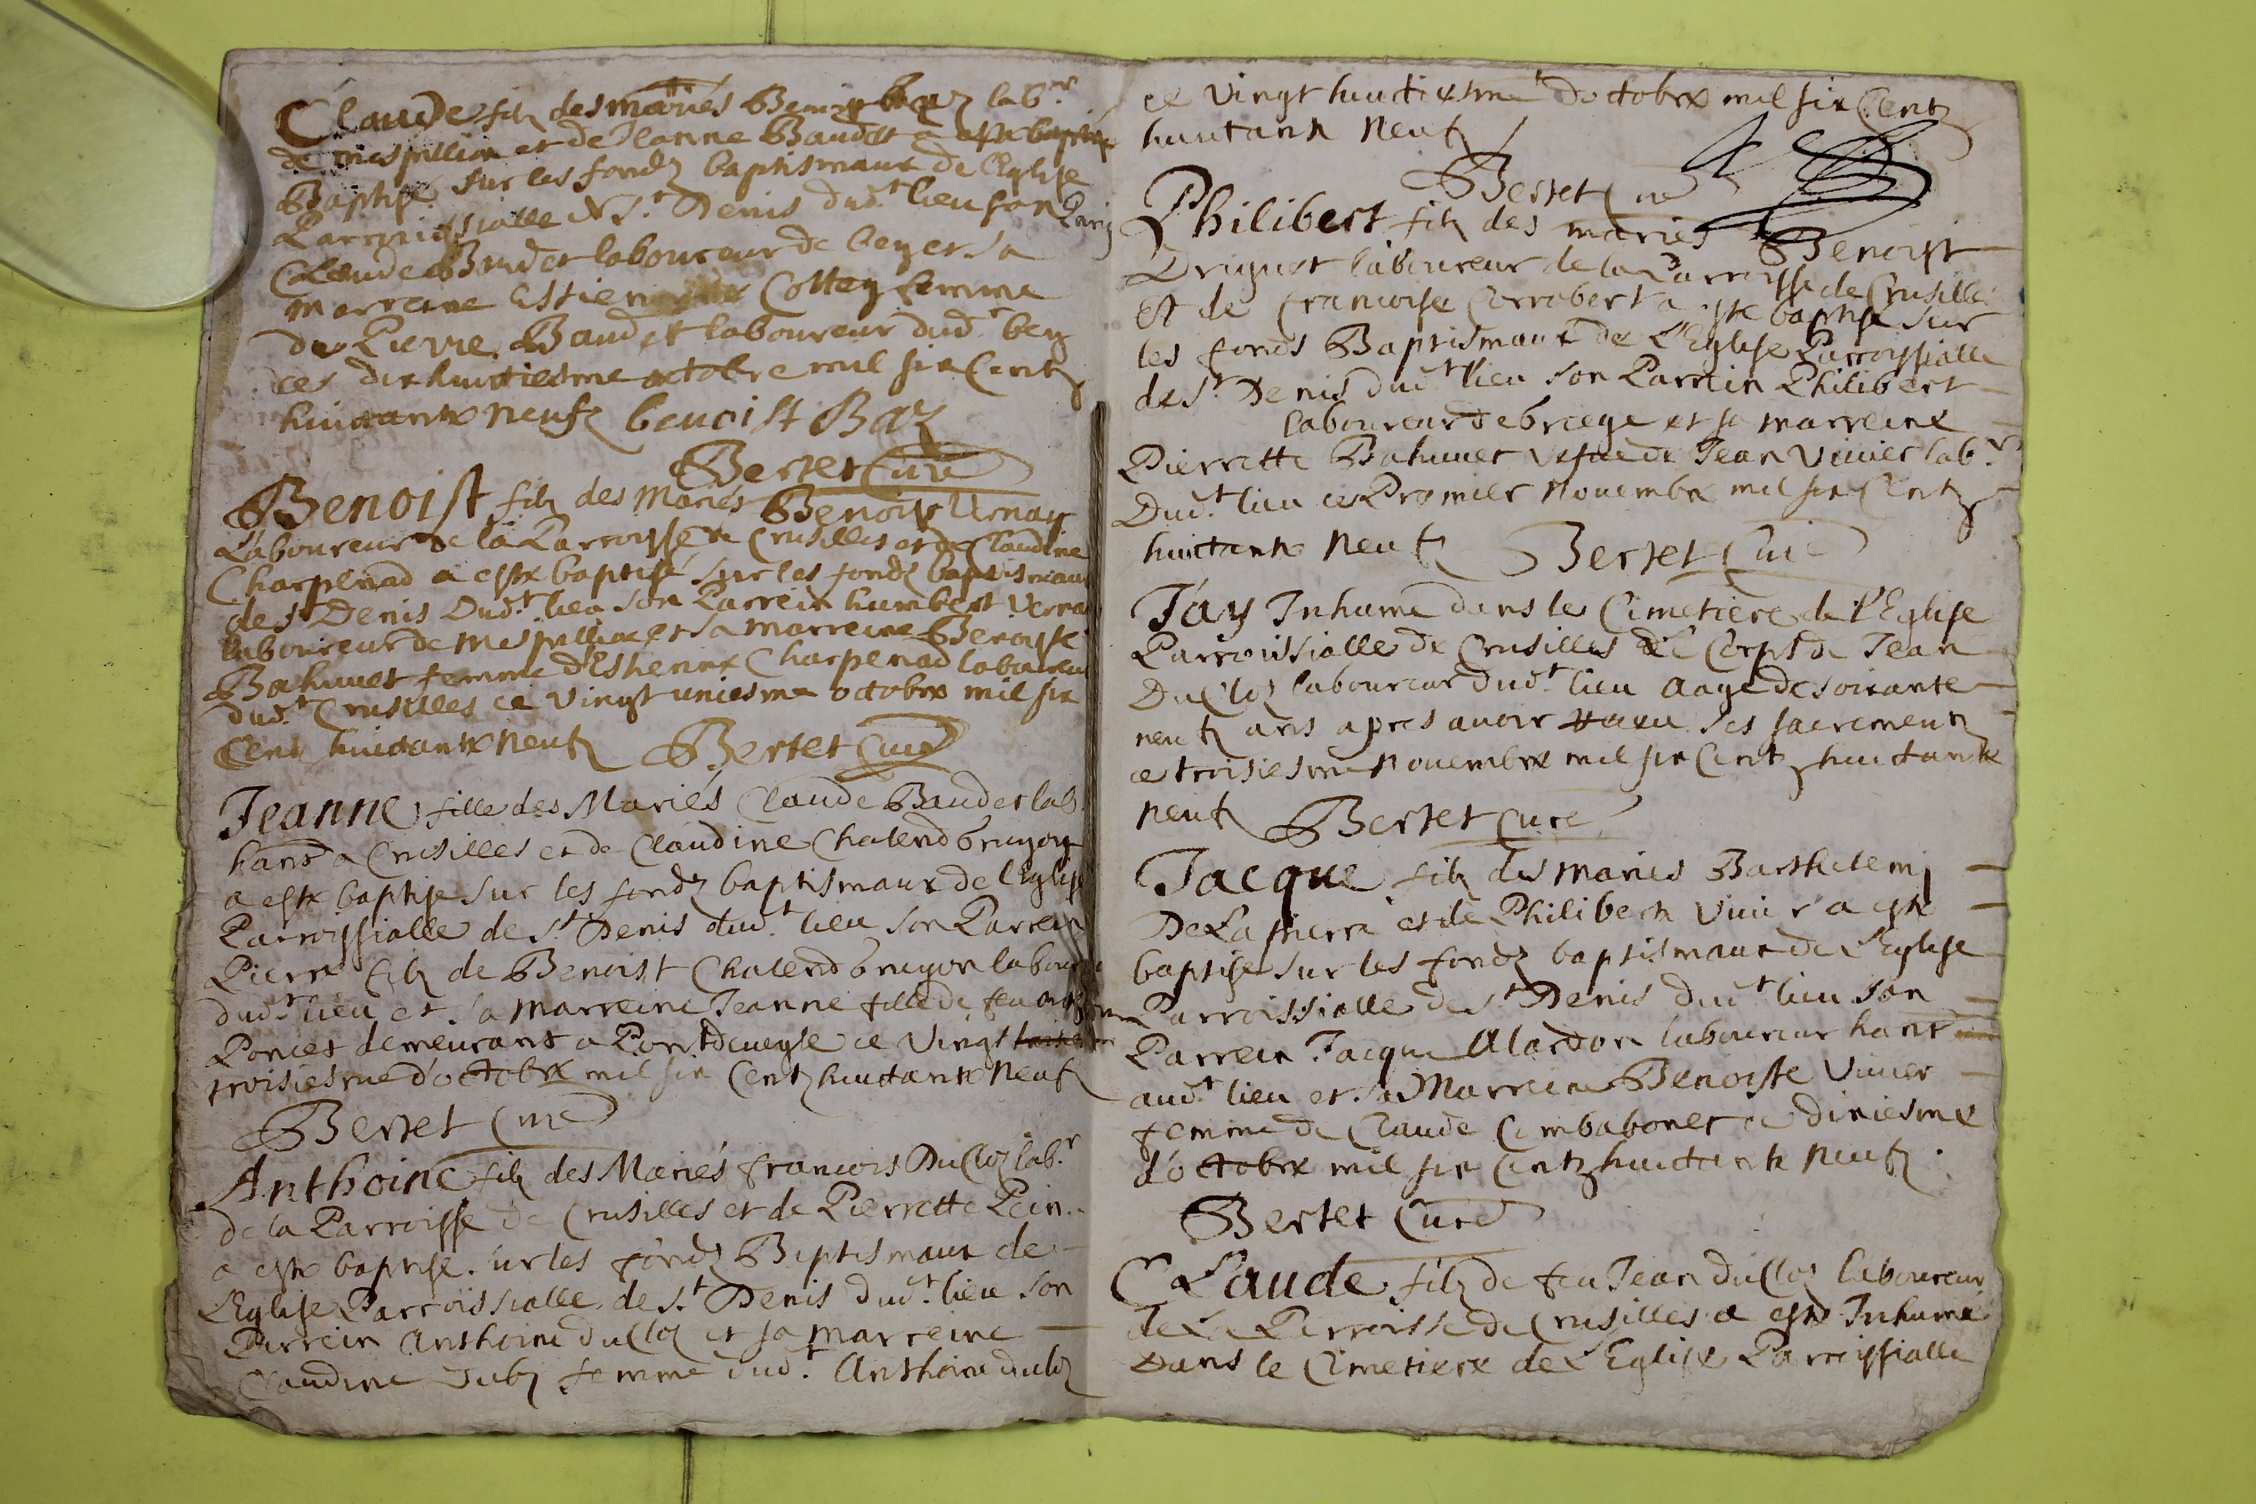 Claude filz des mariés Benoist baz lab.r
de mespilliat et de Jeanne Baudet a este
Baptisé sur les fondz baptismaux de l'Eglise
Parroissialle de S.t Denis dud.t lieu son Parin
Claude Baudet laboureur de bey et sa
marreine Estiennette Cottey femme
de Pierre Baudet laboureur dud.t bey
ce dixhuictiesme octobre mil six Centz
huictante neufz benoist Baz
Bertet Curé
Benoist filz des Mariés Benoist Vernay
Laboureur de la Parroisse de Crusilles et de Claudine
Charpenad a este baptisé sur les fondz baptismaux
de S.t Denis Dud.t lieu son Parrein humbert Verna
laboureur de mespilliat et sa marreine Benoiste
Bahuuet femme d'Estienne Charpenad laboureur
dud.t Crusilles ce vingt uniesme octobre mil six
Centz huictante neufz Bertet Curé
Jeanne fille des Mariés Claude Baudet lab
hant a Crusilles et de Claudine Chalend bruyon
a este baptise sur les fondz baptismaux de l'Eglise
Parroissialle de S.t Denis dud.t lieu son Parrein
Pierre filz de Benoist Chalend bruyon laboureur
dud.t lieu et sa marreine Jeanne fille de feu
Poncet demeurant a Pontdeueyle ce vingt
troisiesme d'octobre mil six Centz huictante neufz
Bertet Curé
Anthoine filz des Mariés francois DuCloz lab.r
de la Parroisse de Crusilles et de Pierrette Pein
a este baptise sur les fondz Baptismaux de
L'Eglise Parroissialle de S.t Denis dud.t lieu son
Parrein Anthoine duCloz et sa marreine
Claudine femme dud.t Anthoine ducloz
ce vingt huictiesme d'octobre mil six Centz
huictante neufz
Bertet Curé
Philibert filz des mariés Benoist
Driguet laboureur de la Parroisse de Crusilles
et de francoise Corrobert a este baptise sur
les fonds Baptismaux de L'Eglise Parroissialle
de S.t Denis dud.t lieu son Parrein Philibert
laboureur de briege et sa marreine
Pierrette Bahuuet vefue de Jean Viuier lab.r
Dud.t lieu ce Premier Nouembre mil six Centz
huictante neufz Bertet Curé
J'ay Inhumé dans le Cimetiere de l'Eglise
Parroissialle de Crusilles le Corps de Jean
DuCloz laboureur dud.t lieu aagé de soixante
neufz ans apres auoir receu ses sacrementz
ce troisiesme Nouembre mil six Centz huictante
neufz Bertet Curé
Jacque filz des mariés Barthelemj
De La pierre et de Philiberte Viuier a este
baptise sur les fondz baptismaux de L'Eglise
Parroissialle de S.t Denis dud.t lieu son
Parrein Jacque Alardon laboureur hant
aud.t lieu et sa Marreine Benoiste Viuier
femme de Claude Combabonet ce dixiesme
d'octobre mil six Centz huictante neufz.
Bertet Curé
CLaude filz de feu Jean duCloz laboureur
de La Perroisse de Crusilles a este Inhumé
Dans le Cimetiere de L'Eglise Parroissialle